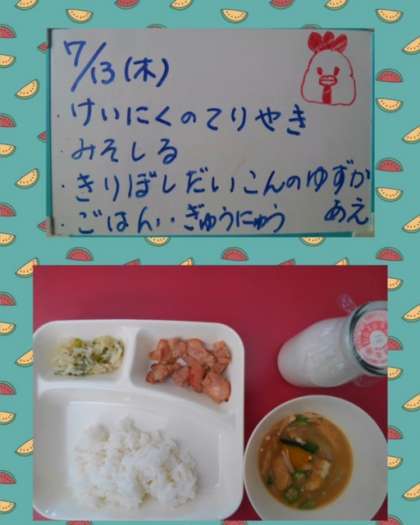 7/13(木)
・けいにくのてりやき
・みそしる
・きりぼしだいこんのゆずか
あえ
・ごはん・・ぎゅうにゅう